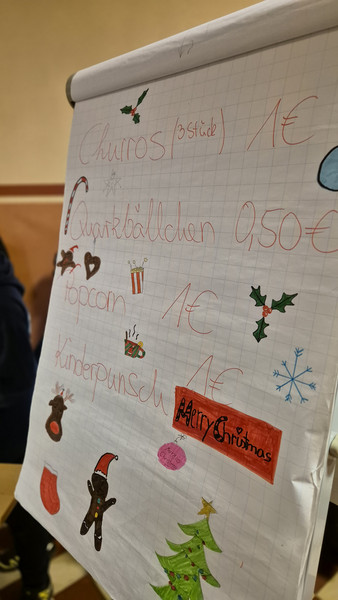 Churros (3 stücke) 1€
Quarkbällchen 0,50€
Popcorn 1€
Kinderpunsch 1€
Merry Christmas